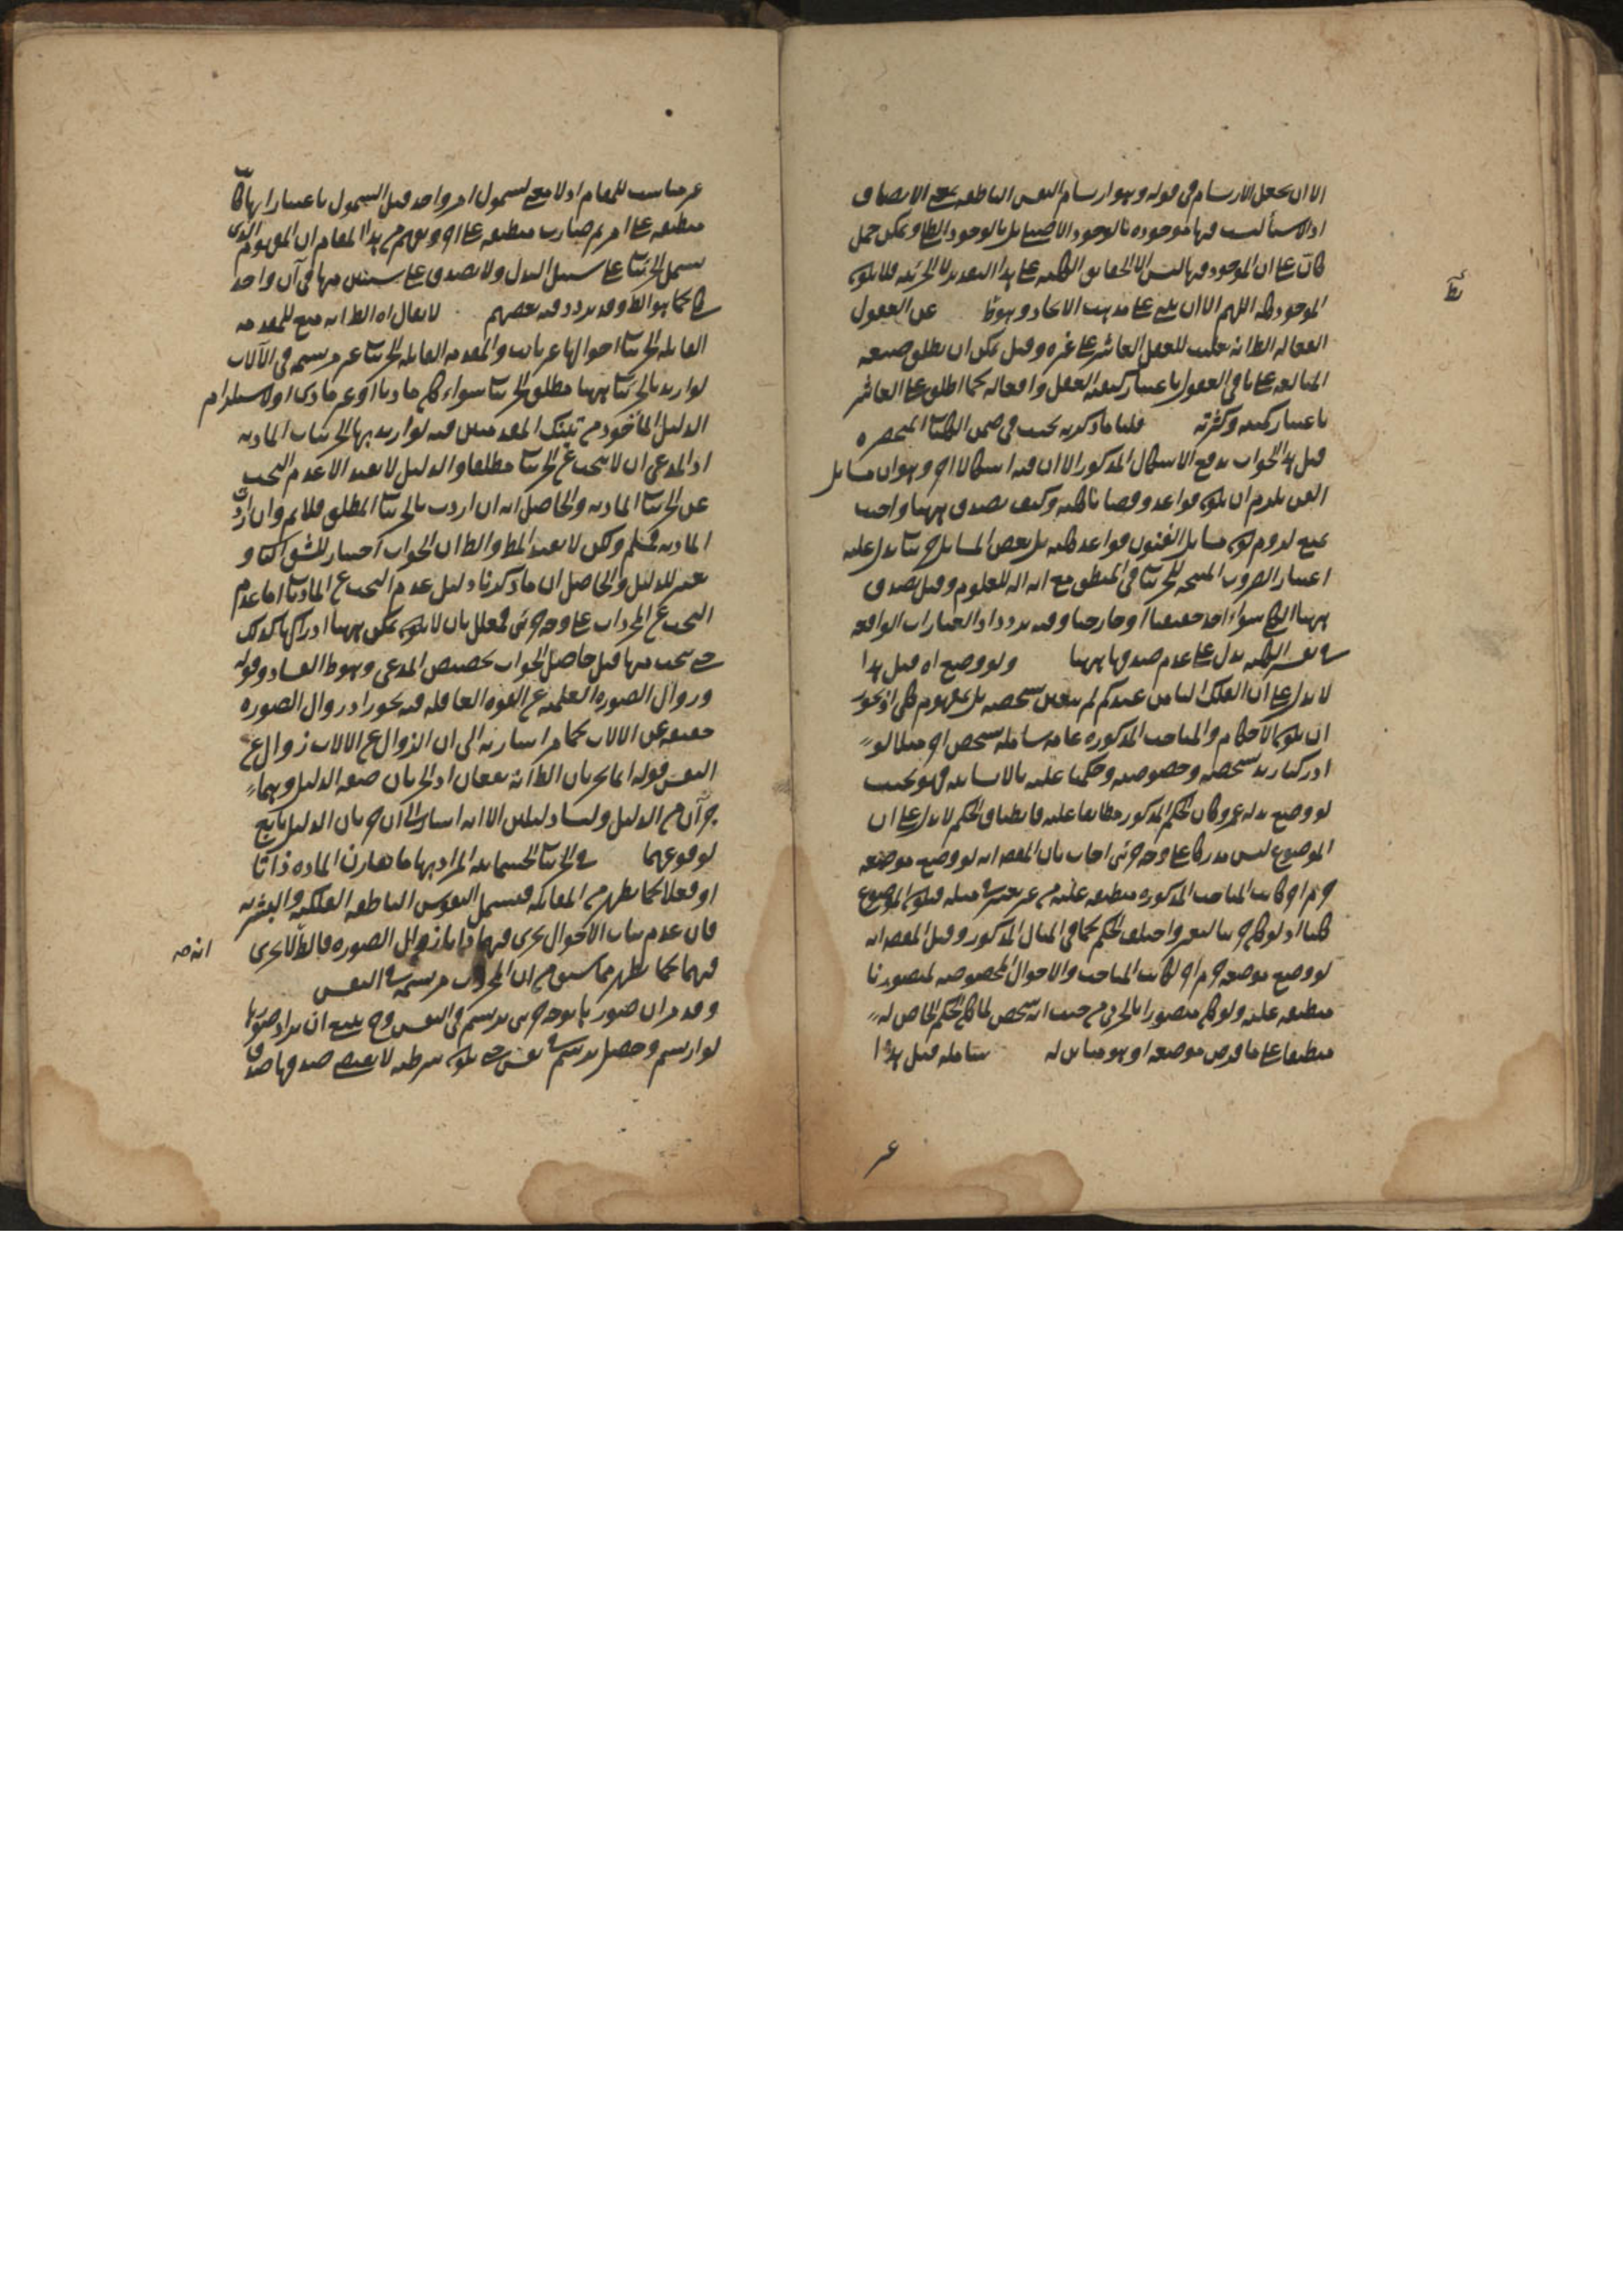 الا ان يجعل الارتسام فى قوله وهو ارتسام النفس الناطقه بمعنى الاتصاف
اذ الاشيأ ليست فيها موجوده بالوجود الاصيلى بل بالوجود الظلى ويمكن حمل
على ان الموجود فيها ليس الا الحقايق الكليه على هذا التقدير لا الجزئيه فلا يكون
الموجود كليه اللهم الا ان يبنى على مذهب الاتحاد وهوظ عن العقول
الفعاله الظ انه تغليب للعقل العاشر على غيره وقيل يمكن ان يطلق صيغه
المبالغه على باقى العقول باعتبار كيفيه الفعل وافعاله كما اطلق على العاشر
باعتبار كميته وكثرته قلنا ما ذكرته بحث فى ضمن الكليات المنحصره
قيل هذا الجواب يدفع الاشكال المذكور الا ان فيه اشكالا اخر وهو ان مسايل
الفن يلزم ان يكون قواعد وقضايا كليه وكيف يصدق ههنا واجيب
بمنع لزوم كون مسايل الفنون قواعد كليه بل بعض المسايل جزئيا يدل عليه
اعتبار الضروب المنتجه للجزئيات فى المنطق مع انه اله للعلوم وقيل يصدق
ههنا الكلى سواء اخذ حقيقيا او خارجيا وفيه تردد اذ العبارات الواقعه
فى تفسير الكليه يدل على عدم صدقها ههنا ولو وضع اه قيل هذا
لا يدل على ان الفلك الثامن عندكم لم يتعين بشخصه بل بمفهوم كلى اذ يجوز
ان يكون الاحكام والمباحث المذكوره عامه شامله لشخص اخر مثلا لو
ادركنا زيد بشخصه وخصوصه وحكمنا عليه بالانسانيه فهو بحيث
لو وضع بدله عمرو كان الحكم المذكور مطابقا عليه فانطباق الحكم لا يدل على ان
الموضوع ليس مدركا على وجه جزئى اجاب بان المقصد انه لو وضع موضعه
جرم اخر كانت المباحث المذكوره منطبقه عليه من غير تغيير فى مثله فيكون الموضوع
كليا اذ لو كان جزئيا لتغير واختلف الحكم كما فى المثال المذكور وقيل المقصد انه
لو وضع موضعه جرم اخر لكانت المباحث والاحوال المخصوصه لمتصورنا
منطبقه عليه ولو كان متصورنا بالجزئى من حيث انه شخص لما كان الحكم الخاص له
منطبقا على ما فرض موضعه اذ هو مباين له تامله قيل هذا
غير
غير مناسب للمقام اذ لا معنى لشمول امر واحد قيل الشمول باعتبار انها
منطبقه على امر ثم صارت منطبقه على اخر ويفهم من هذا المقام ان المفهوم الذى
يشمل الجزئيات على سبيل البدل ولا يصدق على شيئين منها فى آن واحد
كلى كما هو الظ وقد تردد فيه بعضهم لا يقال اه الظ انه منع للمقدمه
القايله الجزئيات احوالها غير ثابت والمقدمه القايله الجزئيات غير مرتسمه فى الآلات
لو اريد بالجزئيات ههنا مطلق الجزئيات سواء كان ماديا او غير مادى او لاستلزام
الدليل المأخوذ من تينك المقدمتين فيه لو اريد بها الجزئيات الماديه
اذ المدعى ان لا يبحث عن الجزئيات مطلقا والدليل لا يفيد الا عدم البحث
عن الجزئيات الماديه والحاصل انه ان اردت بالجزئيات المطلق فلا يتم وان اردت
الماديه فمسلم ولكن لا يفيد المط والظ ان الجواب اختيار للشق الثانى و
تغيير للدليل والحاصل ان ما ذكرنا دليل عدم البحث عن الماديات اما عدم
البحث عن المجردات على وجه جزئى فمعلل بان لا يكون يمكن ههنا ادراكها كذلك
حتى يبحث عنها قيل حاصل الجواب تخصيص المدعى وهو ظ الفساد وقوله
وزوال الصوره العلميه عن القوه العاقله فيه تجوز اذ زوال الصوره
حقيقه عن الالات كما مر اشارته الى ان الزوال عن الالات زوال عن
النفس قوله انما يجريان الظ انه يقعان اذ الجريان صفه الدليل وهما
جزآن من الدليل وليسا دليلين الا انه اشار الى ان جريان الدليل تابع
لوقوعهما فى الجزئيات الجسمانيه المراد بها ما يقارن الماده ذاتا
او فعلا كما يظهر من المقابله فيشمل النفوس الناطقه الفلكيه والبشريه
فان عدم ثبات الاحوال يجرى فيها واما زوال الصوره فالظ انه لا يجرى
انه صح
فيهما كما يظهر مما سبق من ان المجردات مرتسمه فى النفس
وقد مر ان صور ما بوجه جزئى يرتسم فى النفس وح ينبغى ان يراد صورها
لو ارتسم وحصل يرتسم فى نفس حتى يكون شرطيه لا يقتضى صدقها صدق